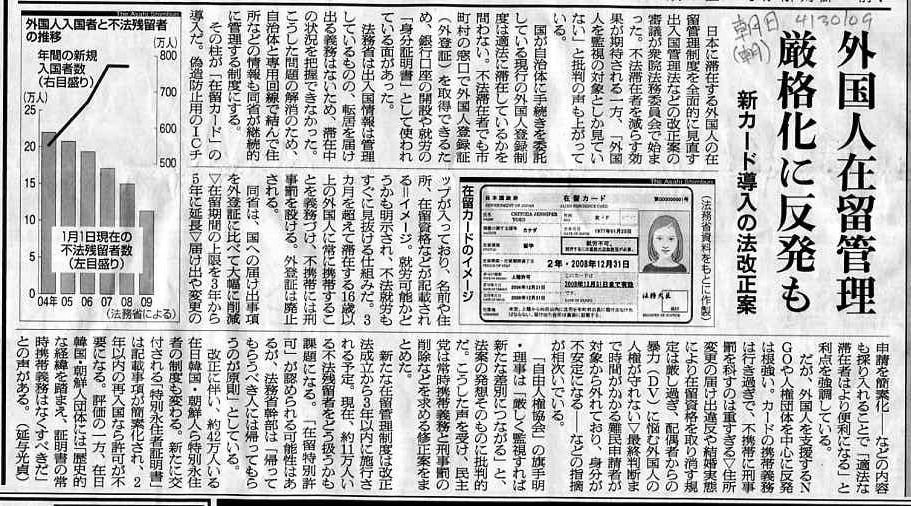 朝日 4/30/09
(朝)
外国人在留管理
厳格化に反発も
新カード導入の法改正案
日本に滞在する外国人の在
留管理制度を全面的に見直す
出入国管理法などの改正案の
審議が衆院法務委員会で始ま
った。不法滞在者を減らす効
果が期待される一方、「外国
人を監視の対象としか見てい
ない」と批判の声も上がって
いる。
国が自治体に手続きを委託
している現行の外国人登録制
度は適法に滞在しているかを
問わない。不法滞在者でも市
町村の窓口で外国人登録証
(外登証)を取得できるた
め、銀行口座の開設や就労の
「身分証明書」として使われ
ている面があった。
法務省は出入国情報は管理
しているものの、転居を届け
出る義務はないため、滞在中
の状況を把握できなかった。
こうした問題の解消のため、
自治体と専用回線で結んで住
所などの情報も同省が継続的
に管理する制度にする。
その柱が「在留カード」の
導入だ。偽造防止用のICチ
ップが入っており、名前や住
所、在留資格などが記載され
る=イメージ。就労可能かど
うかも明示され、不法就労も
すぐに見抜ける仕組みだ。3
カ月を超えて滞在する16歳以
上の外国人に常に携帯するこ
とを義務づけ、不携帯には刑
事罰を設ける。外登証は廃止
される。
同省は、国への届け出事項
を外登証に比べて大幅に削減
▽在留期間の上限を3年から
5年に延長▽届け出や変更の
申請を簡素化――などの内容
も採り入れることで「適法な
滞在者はより便利になる」と
利点を強調している。
だが、外国人を支援するN
GOや人権団体を中心に反発
は根強い。カードの携帯義務
は行き過ぎで、不携帯に刑事
罰を科すのは重すぎる▽住所
変更の届け出違反や結婚実態
により在留資格を取り消す規
定は厳し過ぎ、配偶者からの
暴力(DV)に悩む外国人の
人権が守れない▽最終判断ま
で時間がかかる難民申請者が
対象から外れており、身分が
不安定になる――などの指摘
が相次いでいる。
「自由人権協会」の旗手明
・理事は「厳しく監視すれば
新たな差別につながる」と、
法案の発想そのものに批判的
だ。こうした声を受け、民主
党は常時携帯義務と刑事罰の
削除などを求める修正案をま
とめた。
新たな在留管理制度は改正
法成立から3年以内に施行さ
れる予定。現在、約11万人い
る不法残留者をどう扱うかも
課題になる。「在留特別許
可」が認められる可能性はあ
るが、法務省幹部は「帰って
もらうべき人には帰ってもら
うのが原則」としている。
改正に伴い、約42万人いる
在日韓国・朝鮮人ら特別永住
者の制度も変わる。新たに交
付される「特別永住者証明書」
は記載事項が簡素化され、2
年以内の再入国なら許可が不
要になる。評価の一方、在日
韓国・朝鮮人団体には「歴史的
な経緯を踏まえ、証明書の常
時携帯義務はなくすべきだ」
との声がある。(延与光貞)
The Asahi Shimbun
日本国政府
GOVERNMENT OF JAPAN
在留カード
カナダ
留学
就労不可
2年・2008年12月31日
2008年12月31日まで有効
法務大臣
(法務省資料をもとに作製)
在留カードのイメージ
The Asahi Shimbun
外国人入国者と不法残留者
の推移
年間の新規
入国者数
(右目盛り)
(万人)
800
700
600
500
25万人
20
15
10
5
0
1月1日現在の
不法残留者数
(左目盛り)
04年 05 06 07 08 09
(法務省による)